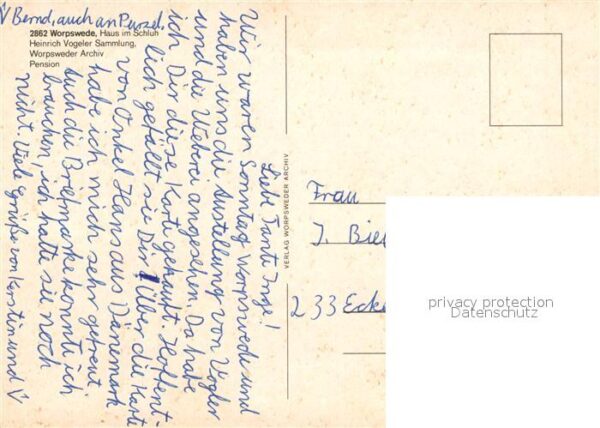 2862 Worpswede, Haus im Schluh
Heinrich Vogeler Sammlung,
Worpsweder Archiv
Pension
VERLAG WORPSWEDER ARCHIV
Liebe Tante Inge!
Wir waren Sonntag Worpswede und
haben uns die Austellung von Vogler
und die Weberei angesehen. Da habe
ich Dir diese Karte gekauft. Hoffent-
lich gefällt sie Dir. Über die Karte
von Onkel Hans aus Dänemark
habe ich mich sehr gefreut
auch die Briefmarke konnte ich
brauchen, ich hatte sie noch
nicht. Viele Grüße von Kerstin und
Bernd, auch an Purzel.
Frau
J. Biel
233 Ecke
privacy protection
Datenschutz